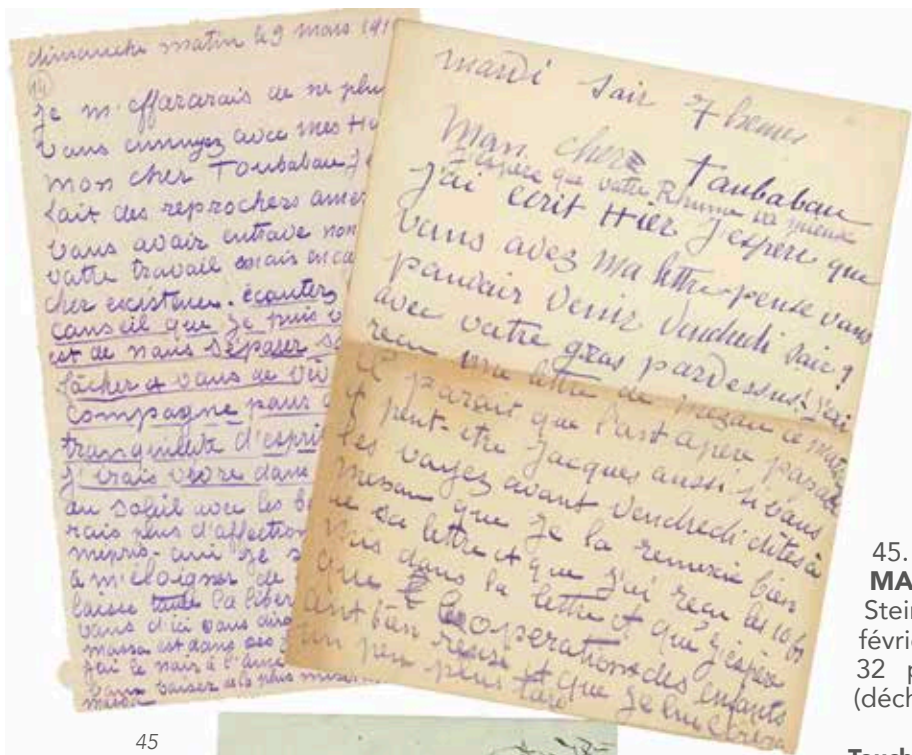 dimanche matin le 9 mars 191
14
je m'effararais de ne plus
vous ennuyez avec mes
mon cher Toubabau
fait des reprocher amer
vous avoir entrave non
votre travail mais encore
cher existence. écouter
conseil que je puis
est de nous séparer
fâcher et vous de
compagne pour
tranquillité d'esprit
j'irais vivre dans
au soleil avec les
rais plus d'affection
mepris - oui je
a m'éloigner de
laisse toute la liber
vous d'ici vous
massa est dans ses
j'ai le noir à l'âme
baiser de la plus
massa
mardi soir 7 heures
Mon cher Taubabau
J'espère que votre Rhume va mieux
j'ai écrit Hier j'espere que
vous avez ma lettre - pense vous
pouvoir venir vendredi soir ?
avec votre gros pardessus ! j'ai
recu une lettre de ce matin
il parait que l'ont apere
et peut-etre Jacques aussi si vous
les voyez avant vendredi dites à
que je la remercie bien
de sa lettre et que j'ai reçu les 10
mis dans la lettre et que j'espère
que les operations des enfants
ont bien reussi et que je lui
un peu plus tard
45
45.
MA
Stein
févrie
32 p
(déch
Touch